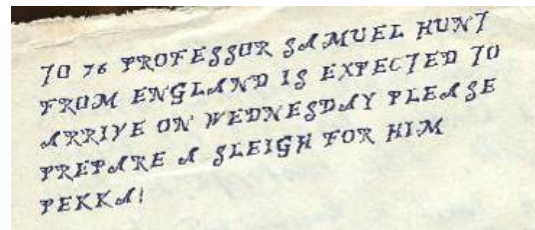 TO 76 PROFESSOR SAMUEL HUNT
FROM ENGLAND IS EXPECTED TO
ARRIVE ON WEDNESDAY PLEASE
PREPARE A SLEIGH FOR HIM
PEKKA!